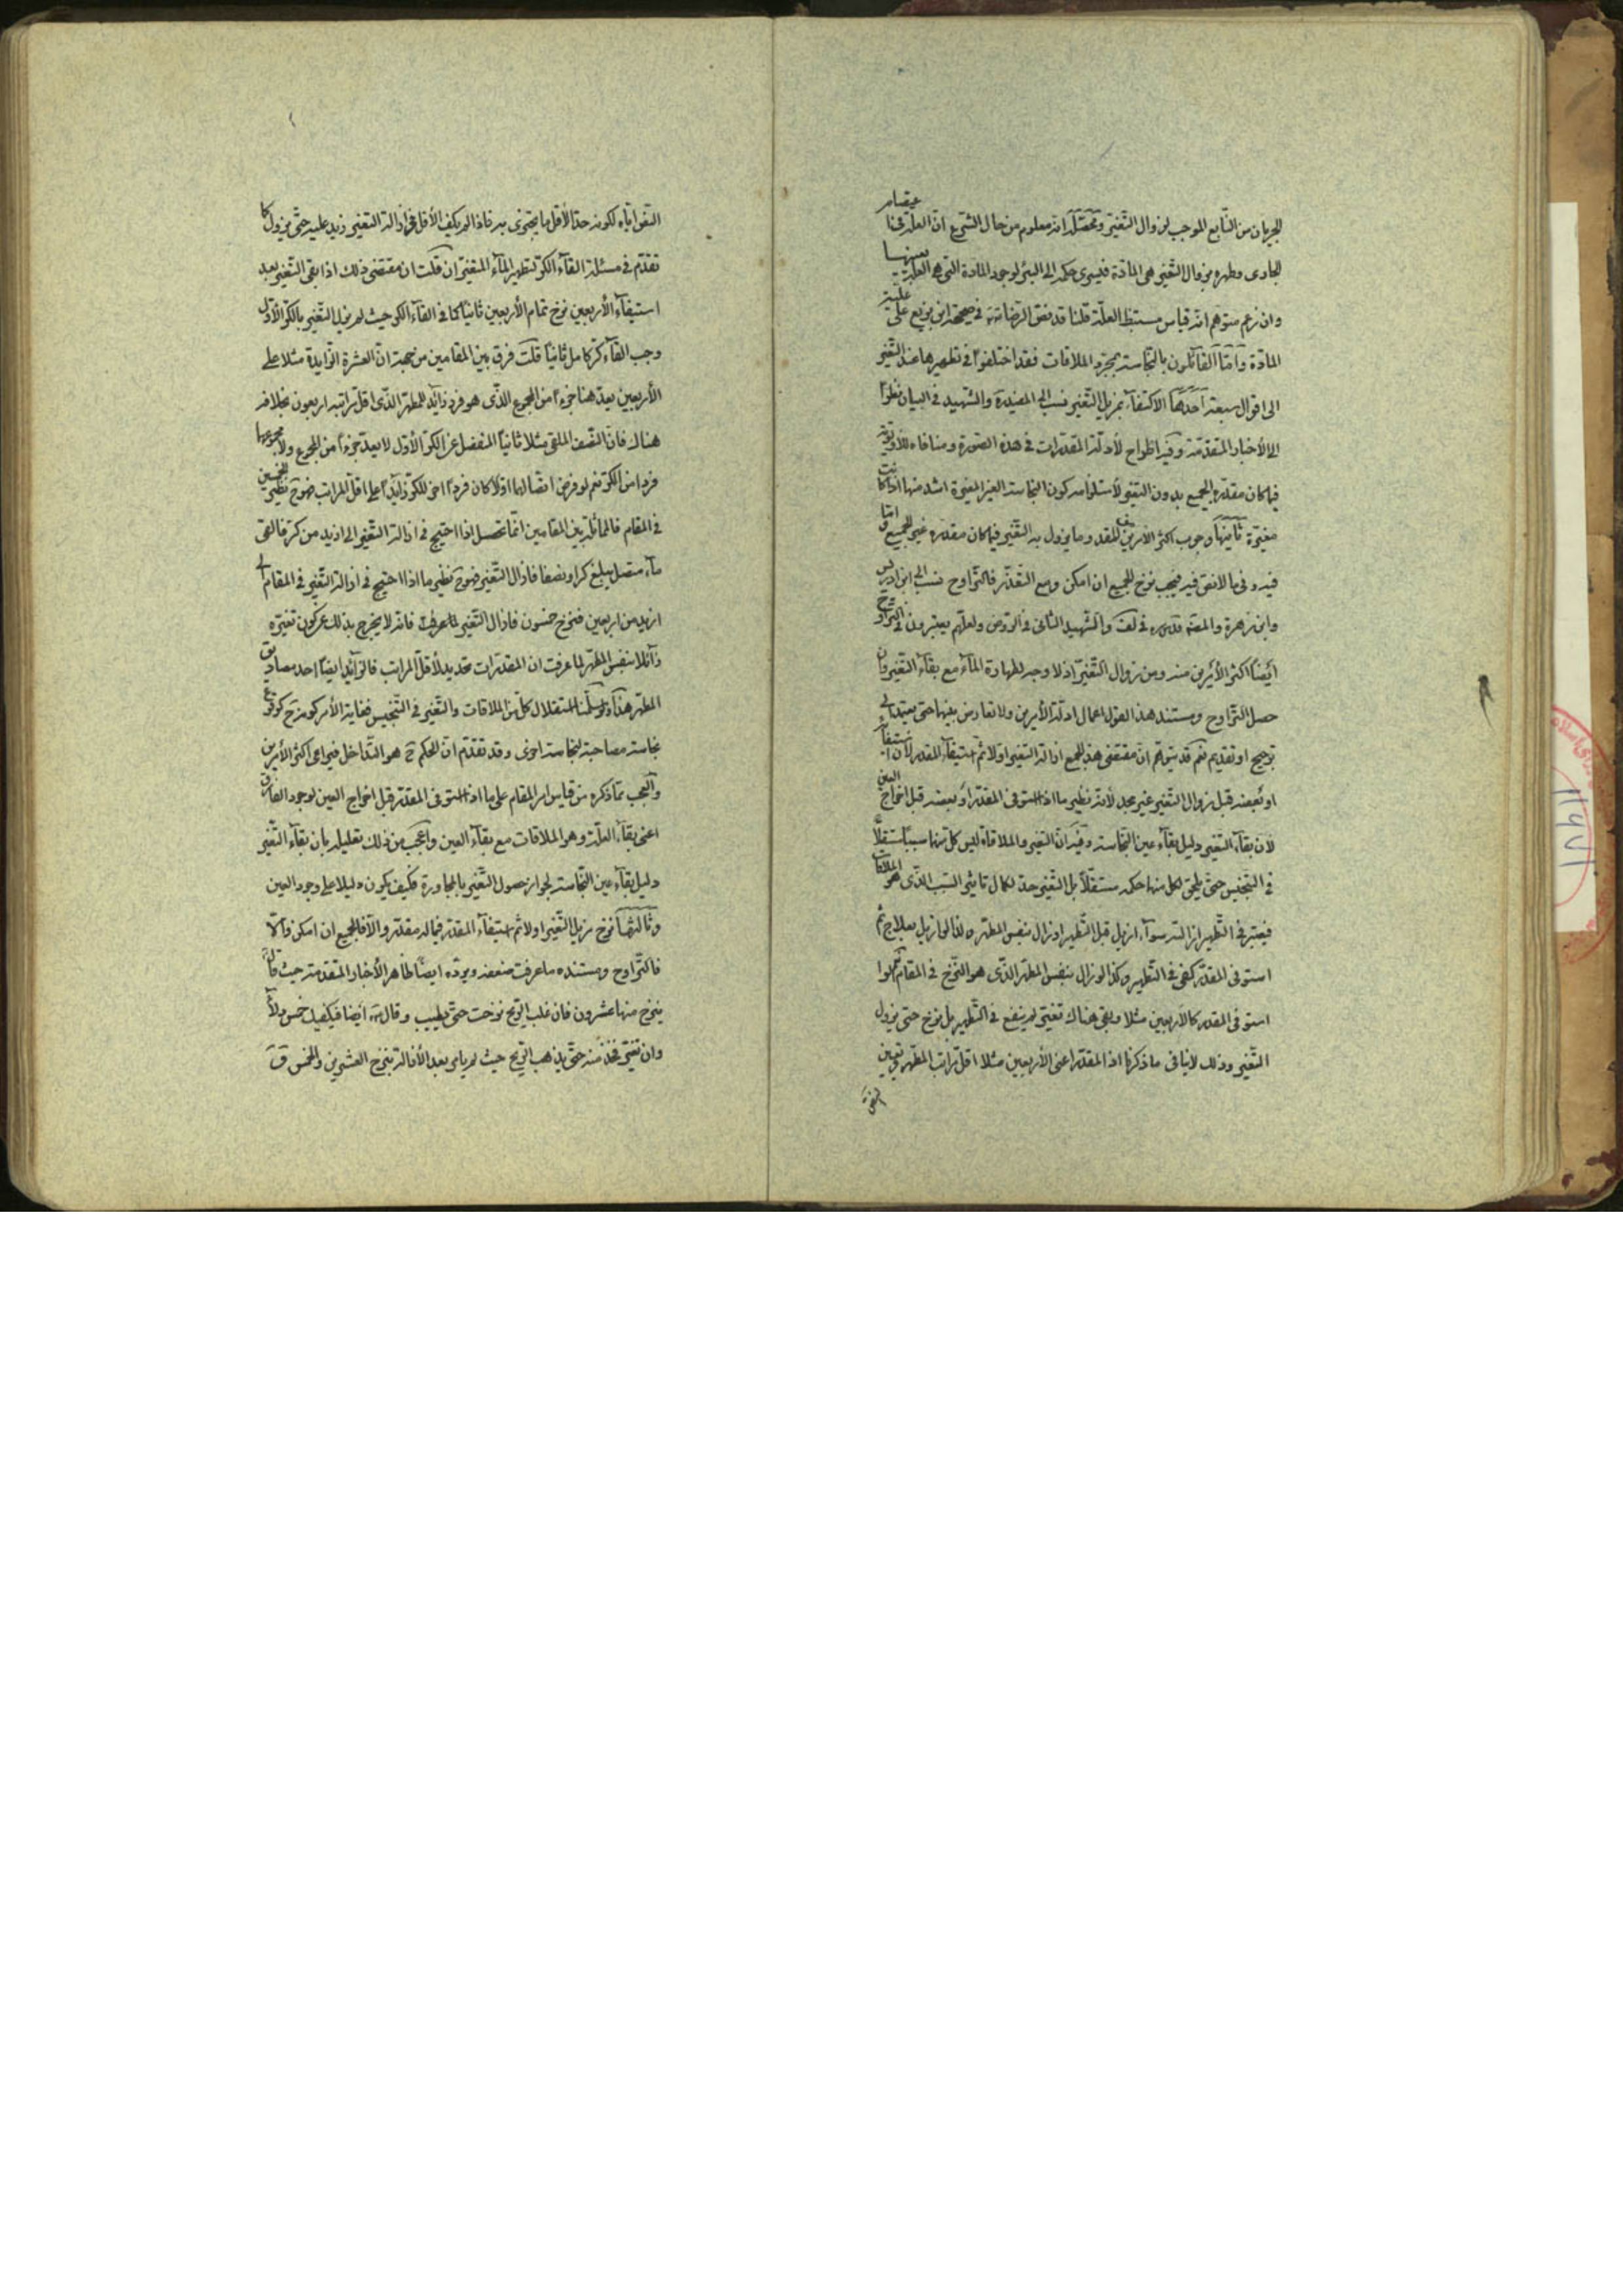 الجريان من النّابع الموجب لزوال التّغيّر ومحصّله انه معلوم من حال الشّرع انّ العلّة في اعتصام
الجارى وطهره بزوال التّغيّر هى المادّة فيسرى حكمه الى البئر لوجود المادة التى هى العلّة بعينها
وان زعم متوهم انّه قياس مستنبط العلّة قلنا قد نصّ الرّضا عليه في صحيحة ابن بزيع على علّية
المادّة وامّا القائلون بالنّجاسة بمجرّد الملاقات فقد اختلفوا في تطهيرها عند التّغيّر
الى اقوال سبعة احدها الاكتفاء بمزيل التّغيّر نسب الى المفيد ره والشّهيد في البيان نظرا
الى الأخبار المتقدّمة وفيه اطراح لأدلّة المقدّرات في هذه الصّورة ومنافاه للأولويّة
فيما كان مقدّره الجميع بدون التغيّر لأستلزامه كون النجاسة الغير المغيّرة اشد منها اذا كانت
مغيّرة ثانيها وجوب اكثر الأمرين من المقدر وما يزول به التّغيّر فيما كان مقدره غير الجميع وامّا
فيه وفى ما لا نصّ فيه فيجب نزح الجميع ان امكن ومع التّعذّر فالتّراوح نسب الى ابن ادريس
وابن زهرة والمصّ قدس سره في لف والشّهيد الثّانى في الرّوض ولعلّهم يعتبرون في التّراوح
ايضا اكثر الأمرين منه ومن زوال التّغيّر اذ لا وجه لطهارة الماء مع بقاء التّغيّر وان
حصل التّراوح ومستند هذا القول اعمال ادلّة الأمرين ولا تعارض بينها حتى يحتاج الى
ترجيح او تقديم نعم قد يتوّهم انّ مقتضى هذا الجمع ازالة التّغيّر اوّلا ثمّ استيفاء المقدر لأن استيفاء
او بعضه قبل زوال التّغيّر غير مجد لأنّه نظير ما اذا استوفى المقدّر او بعضه قبل اخراج العين
لأن بقاء التغيّر دليل بقاء عين النّجاسة وفيه انّ التغيّر والملاقاة ليس كلّ منها سببا مستقلّا
في التنجيس حتّى يلحق لكل منها حكمه مستقلّا بل التّغيّر حدّ لكمال تاثير السّبب الّذى هو الملاقات
فيعتبر في التّطهير ازالته سواء ازيل قبل التّطهير او زال بنفس المطهّر ولذا لو ازيل بعلاج ثمّ
استوفى المقدّر كفى في التّطهير وكذا لو زال بنفس المطهّر الّذى هو النّزح في المقام نعم لو
استوفى المقدر كالأربعين مثلا وبقى هناك تغيّر لم ينفع في التّطهير بل نزح حتى يزول
التّغيّر وذلك لا ينافى ما ذكرنا اذ المقدّر اعنى الأربعين مثلا اقلّ مراتب المطهّر وتعيين
النّص
النّص ايّاه لكونه حدّا لأقل ما يجتزى به فاذا لم يكف الأقل في ازالة التغيّر زيد عليه حتّى يزول كما
تقدّم في مسئلة القاء الكرّ لتطهير الماء المتغيّر ان قلت ان مقتضى ذلك اذا بقى التّغيّر بعد
استيفاء الأربعين نزح تمام الأربعين ثانيا كما في القاء الكر حيث لم يزل التّغيّر بالكرّ الأوّل
وجب القاء كرّ كامل ثانيا قلت فرق بين المقامين من جهة انّ العشرة الزّايدة مثلا على
الأربعين يعدّ هنا جزءا من المجموع الّذى هو فرد زائد للمطهّر الّذى اقل مراتبه اربعون بخلافه
هناك فانّ النّصف الملقى مثلا ثانيا المنفصل عن الكرّ الأوّل لا يعدّ جزءا من المجموع ولا مجموعهما
فردا من الكرّ نعم لو فرض اتّصالهما اوّلا كان فردا اخر للكرّ زايدا على اقلّ المراتب فهو ح نظير الخمسين
في المقام فالمماثلة بين المقامين انّما تحصل اذا احتيج في ازالة التّغيّر الى ازيد من كرّ فالقى
ماء متصل يبلغ كرا ونصفا فازال التّغيّر فهو ح نظير ما اذا احتيج في ازالة التّغيّر في المقام الى
ازيد من اربعين فنزح خمسون فازال التّغيّر لما عرفت فانه لا يخرج بذلك عن كون تغيّره
زائلا بنفس المطهّر لما عرفت ان المقدّرات تحديد لأقلّ المراتب فالزّائد ايضا احد مصاديق
المطهّر هذا ولو سلّمنا استقلال كلّ من الملاقات والتّغيّر في التّنجيس فغاية الأمر كونه ح كوقوع
نجاسة مصاحبة لنجاسة اخرى وقد تقدّم انّ الحكم ح هو التّداخل فيراعى اكثر الأمرين
والعجب ممّا ذكره من قياس امر المقام على ما اذا استوفى المقدّر قبل اخراج العين لوجود الفارق
اعنى بقاء العلّة وهو الملاقات مع بقاء العين واعجب من ذلك تعليله بان بقاء التّغيّر
دليل بقاء عين النّجاسة لجواز حصول التّغيّر بالمجاورة فكيف يكون دليلا على وجود العين
وثالثها نزح مزيل التّغيّر اولا ثم استيفاء المقدّر فيما له مقدّر والّا فالجميع ان امكن والّا
فالتّراوح ومستنده ما عرفت ضعفه ويردّه ايضا ظاهر الأخبار المتقدّمة حيث قال
ينزح منها عشرون فان غلب الرّيح نزحت حتّى يطيب وقال ع ايضا فيكفيك خمس دلاء
وان تغيّر فخذ منه حتّى يذهب الرّيح حيث لم يامر بعد الأزالة بنزح العشرين والخمس ق